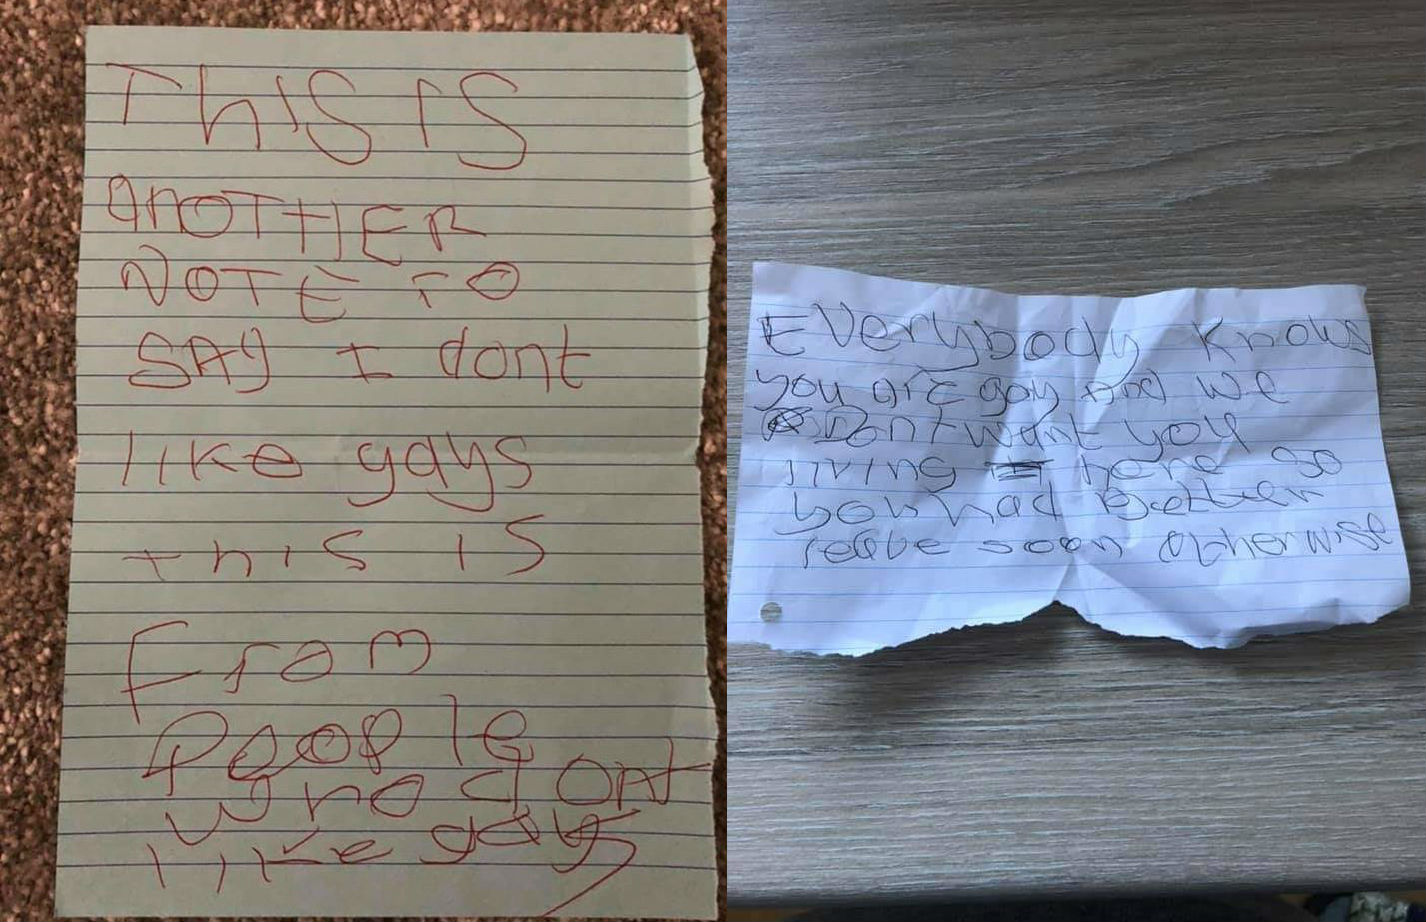 ThIS IS
ANOTHER
NOTE TO
SAY I dont
like gays
this is
From
People
who dont
like gays
EVerybody Knows
you are gay And we
Dont want you
living here so
you had Better
leave soon otherwise